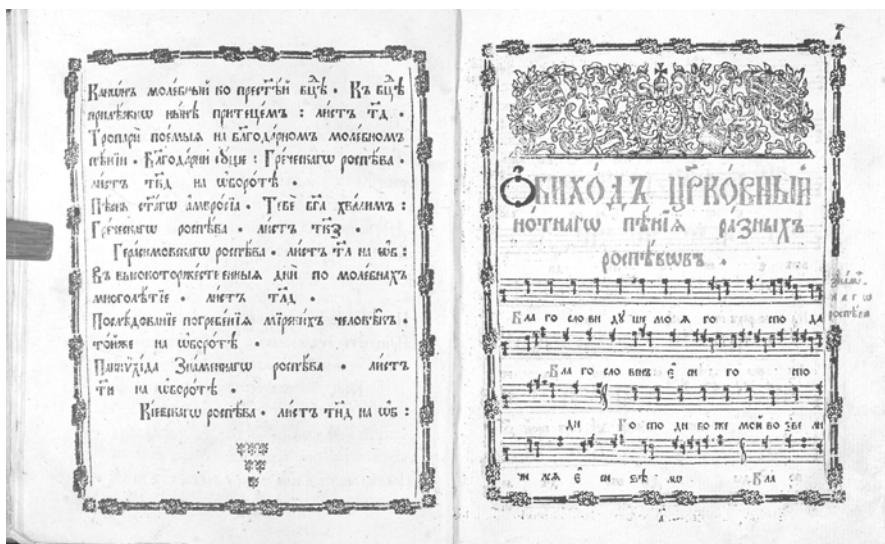 Канѡнъ моле́бный ко прест҃ѣй бц҃ѣ . Къ бц҃ѣ
приле́жнѡ ны́нѣ притеце́мъ : ли́стъ тк҃д .
Тропари̑ пое́мыѧ на бл҃года́рномъ моле́бномъ
пѣ́нїи . Бл҃года́рни сꙋ́ще : Гре́ческагѡ роспѣ́ва .
ли́стъ тк҃д на ѡ҆боро́тѣ .
Пѣ́снь ст҃а́гѡ а҆мвро́сїа . Тебѐ бг҃а хва́лимъ :
Гре́ческагѡ роспѣ́ва . ли́стъ тк҃ꙃ
Гера́симовскагѡ роспѣ́ва . ли́стъ тл҃а на ѡ҆б :
Въ высокоторже́ственныѧ дни̑ по моле́бнахъ
многолѣ́тїе . ли́стъ тл҃д .
Послѣ́дованїе погребе́нїѧ мїрски́хъ человѣ̑къ .
то́йже на ѡ҆боро́тѣ .
Паннѷхі́да Зна́меннагѡ роспѣ́ва . ли́стъ
на ѡ҆боро́тѣ .
Кі́евскагѡ роспѣ́ва . ли́стъ тн҃д на ѡ҆б :
Ѻ҆БИХО́ДЪ ЦР҃КО́ВНЫЙ
но́тнагѡ пѣ́нїѧ ра́зныхъ
роспѣ́вѡвъ .
Зна́мен-
нагѡ
роспѣ́ва
Бла го сло ви дꙋ ше мо ѧ̀ го спо да
Бла го сло ве́нъ є҆ сѝ го спо
ди Го спо ди бо же мой во зве ли
чи лсѧ є҆ сѝ ѕѣ лѡ̀ Бла